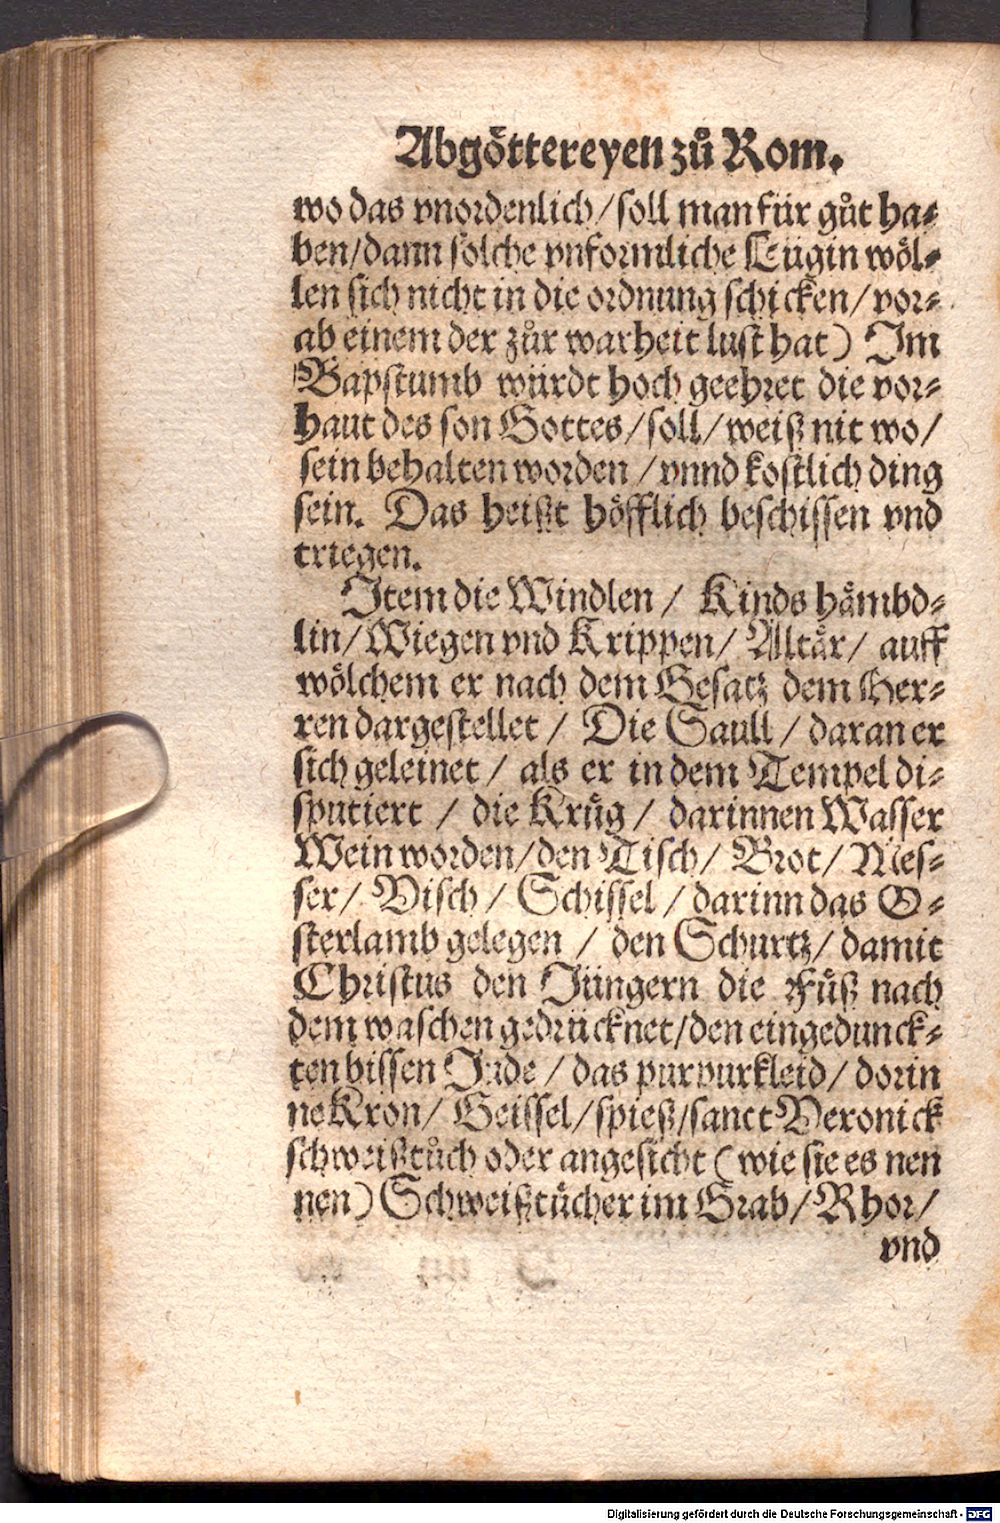 Abgöttereyen zů Rom.
wo das vnordenlich/ soll man für gůt ha⸗
ben/ dann solche vnformliche Lügin wöl⸗
len sich nicht in die ordnung schicken/ vor⸗
ab einem der zůr warheit lust hat) Im
Bapstumb würdt hoch geehret die vor⸗
haut des son Gottes/ soll/ weiß nit wo/
sein behalten worden/ vnnd kostlich ding
sein. Das heißt höfflich beschissen vnd
triegen.
Item die Windlen/ Kinds hämbd⸗
lin/ Wiegen vnd Krippen/ Altär/ auff
wölchem er nach dem Gesatz dem Her⸗
ren dargestellet/ Die Saull/ daran er
sich geleinet/ als er in dem Tempel di⸗
sputiert/ die Krüg/ darinnen Wasser
Wein worden/ den Tisch/ Brot/ Mes⸗
ser/ Visch/ Schissel/ darinn das O⸗
sterlamb gelegen/ den Schurtz/ damit
Christus den Jüngern die Füß nach
dem waschen gedrücknet/ den eingedunck⸗
ten bissen Jude/ das purpurkleid/ dorin
ne Kron/ Geissel/ spieß/ sanct Veronick
schweißtůch oder angesicht (wie sie es nen
nen) Schweißtücher im Grab/ Rhor/
vnd
Digitalisierung gefördert durch die Deutsche Forschungsgemeinschaft - DFG